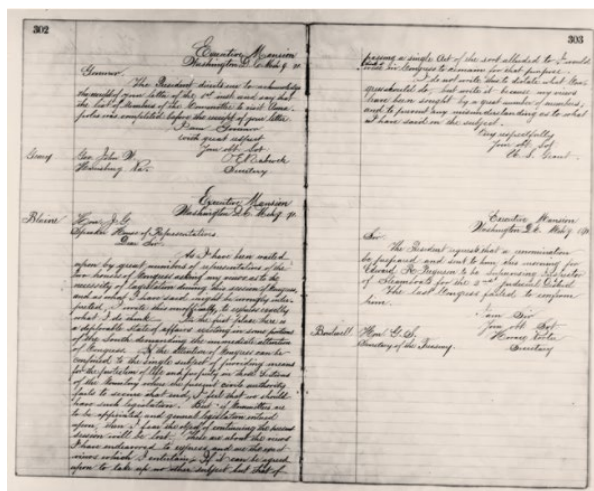 302
Executive Mansion
Washington D.C. Mch 9. 71.
Governor.
The President directs me to acknowledge
the receipt of your letter of the inst. and say that
the list of Members of the Committee to visit
was completed before the receipt of your letter.
I am Governor
with great respect
Your obt. Svt
Geary Gov. John W. O E Babcock
Harrisburg Pa. Secretary
Executive Mansion
Washington D.C. Mch 9. 71.
Blaine Hon. J. G.
Speaker House of Representatives
Dear Sir.
As I have been waited
upon by great numbers of representatives of the
two houses of Congress asking my views as to the
necessity of legislation during this session of Congress,
and as what I have said might be wrongly inter-
preted, I write this unofficially, to express exactly
what I do think. In the first place there is
a deplorable state of affairs existing in some portions
of the South demanding the immediate attention
of Congress. If the attention of Congress can be
confined to the single subject of providing means
for the protection of life and property in those Sections
of the Country where the present civil authority
fails to secure that end, I feel that we should
have such legislation. But if Committees are
to be appointed, and general legislation entered
upon, then I fear the object of continuing the present
session will be lost. These are about the views
I have endeavored to express and are the exact
views which I entertain. If it can be agreed
upon to take up no other subject but that of
303
passing a single Act of the sort alluded to I would
Congress to remain for that purpose.
I do not write this to dictate what Con-
gress should do, but write it because my views
have been sought by a great number of members,
and to prevent any misunderstanding as to what
I have said on the subject.
Very respectfully
Your obt. Svt
U. S. Grant.
Executive Mansion
Washington D.C. Mch 9. 71
Sir
The President requests that a nomination
be prepared and sent to him this morning for
to be Supervising Inspector
of Steamboats for the 2nd Judicial District
The last Congress failed to confirm
him.
I am Sir
Your obt. Svt
Boutwell Hon. G. S. Horace Porter
Secretary of the Treasury. Secretary